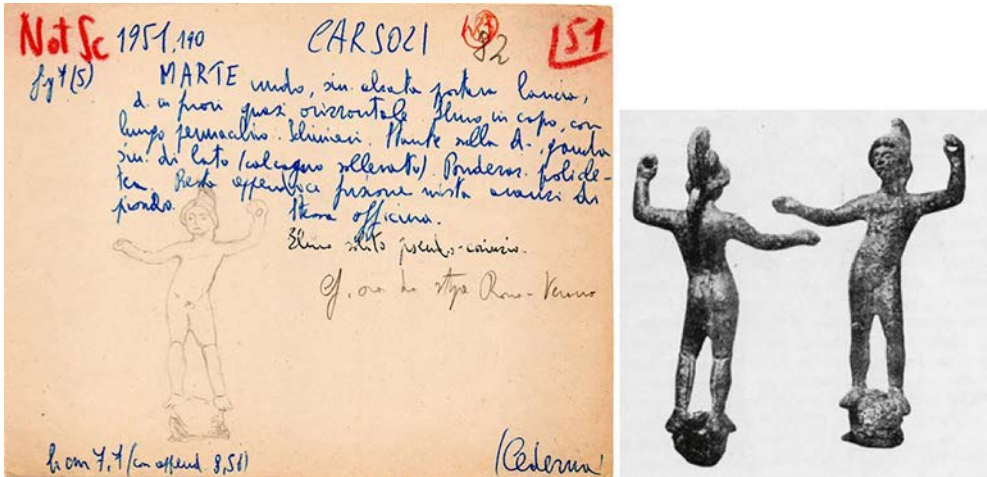 Not Sc 1951, 190 CARSOLI 82 151
fig 7 (5)
MARTE nudo, sin. alzata portava lancia,
d. in fuori quasi orizzontale. Elmo, in capo, con
lungo pennacchio. Schinieri. Stante sulla d., gamba
sin. di lato (calcagno sollevato). Ponderaz. policle-
tea. Resta appendice fusione mista avanzi di
piombo. Stessa officina.
Elmo solito pseudo-corinzio.
Cf. ora da stipe Roma-
h. cm 7,7 (con append. 8,58)
(Cederna)